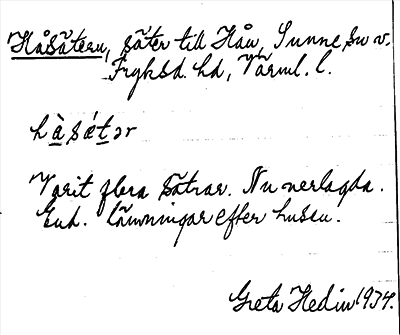 Håsätern, säter till Hån, Sunne sn v.
Fryksd. hd, Värml. l.
hàsǽtər
Varit flera sätrar. Nu nerlagda.
End. lämningar efter husen.
Greta Hedin 1934.